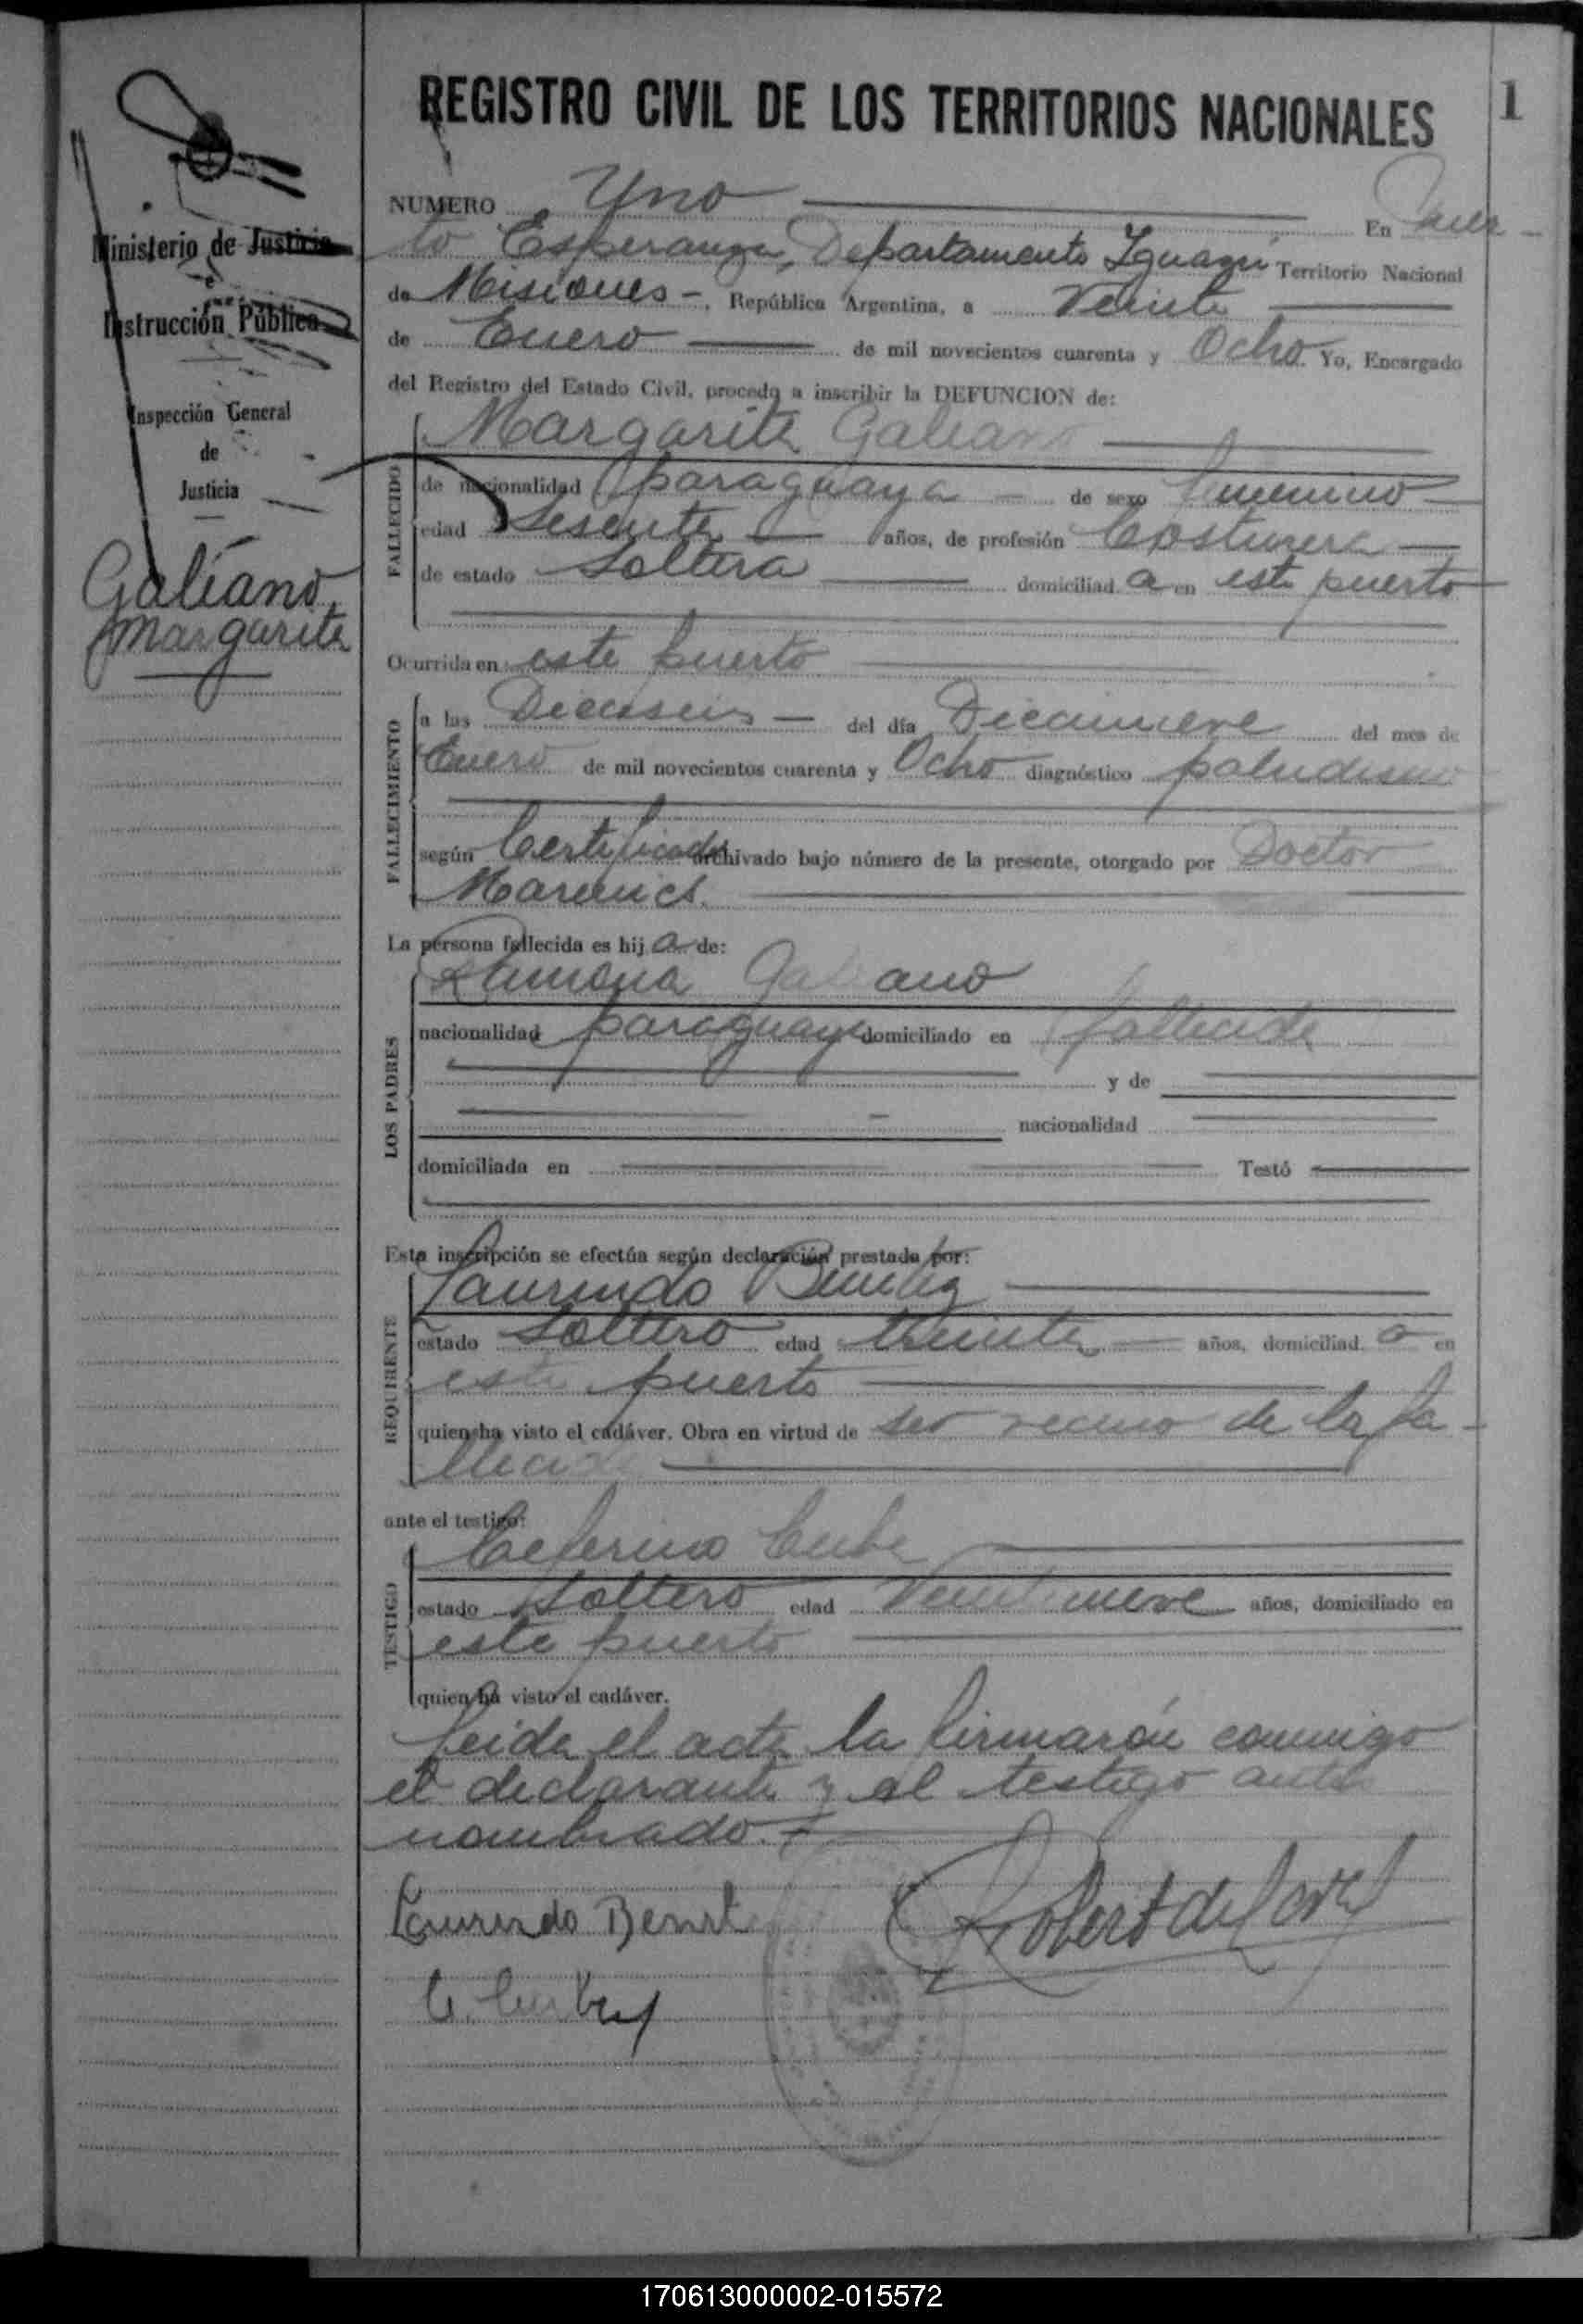 REGISTRO CIVIL DE LOS TERRITORIOS NACIONALES
1
Ministerio de Justicia
e
Instrucción Pública
Inspección General
de
Justicia
Galiano,
Margarita
NUMERO Uno En Puer-
to Esperanza, Departamento Iguazú Territorio Nacional
de Misiones -, República Argentina, a Veinte
de Enero de mil novecientos cuarenta y Ocho Yo, Encargado
del Registro del Estado Civil, procedo a inscribir la DEFUNCION de:
Margarita Galiano
FALLECIDO
de nacionalidad paraguaya de sexo femenino
edad Sesenta años, de profesión Costurera
de estado Soltera domiciliad a en este puerto
Ocurrida en este puerto
FALLECIMIENTO
a las Dieciseis del día Diecinueve del mes de
Enero de mil novecientos cuarenta y Ocho diagnóstico paludismo
según Certificado archivado bajo número de la presente, otorgado por Doctor
La persona fallecida es hij a de:
LOS PADRES
Ramona Galiano
nacionalidad paraguaya domiciliado en fallecida
y de
nacionalidad
domiciliada en Testó
Esta inscripción se efectúa según declaración prestada por:
REQUIRENTE
Laurindo Benitez
estado Soltero edad Veinte años, domiciliad o en
este puerto
quien ha visto el cadáver. Obra en virtud de ser vecino de la fa-
llecida
ante el testigo:
TESTIGO
Ceferino
estado Soltero edad Veintinueve años, domiciliado en
este puerto
quien ha visto el cadáver.
Leida el acta la firmarón conmigo
el declarante y el testigo antes
nombrado.
Laurindo Benitez
170613000002-015572